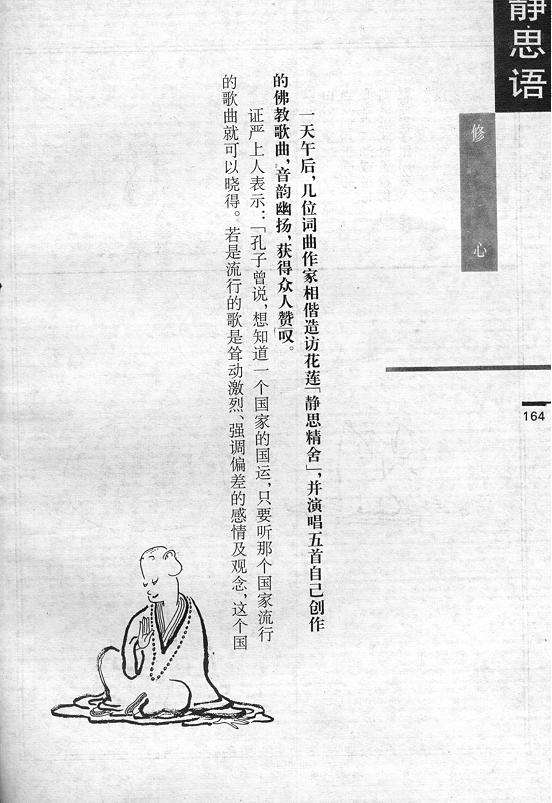 静思语
修心
164
一天午后，几位词曲作家相偕造访花莲「静思精舍」，并演唱五首自己创作
的佛教歌曲，音韵幽扬，获得众人赞叹。
证严上人表示：「孔子曾说，想知道一个国家的国运，只要听那个国家流行
的歌曲就可以晓得。若是流行的歌是耸动激烈、强调偏差的感情及观念，这个国